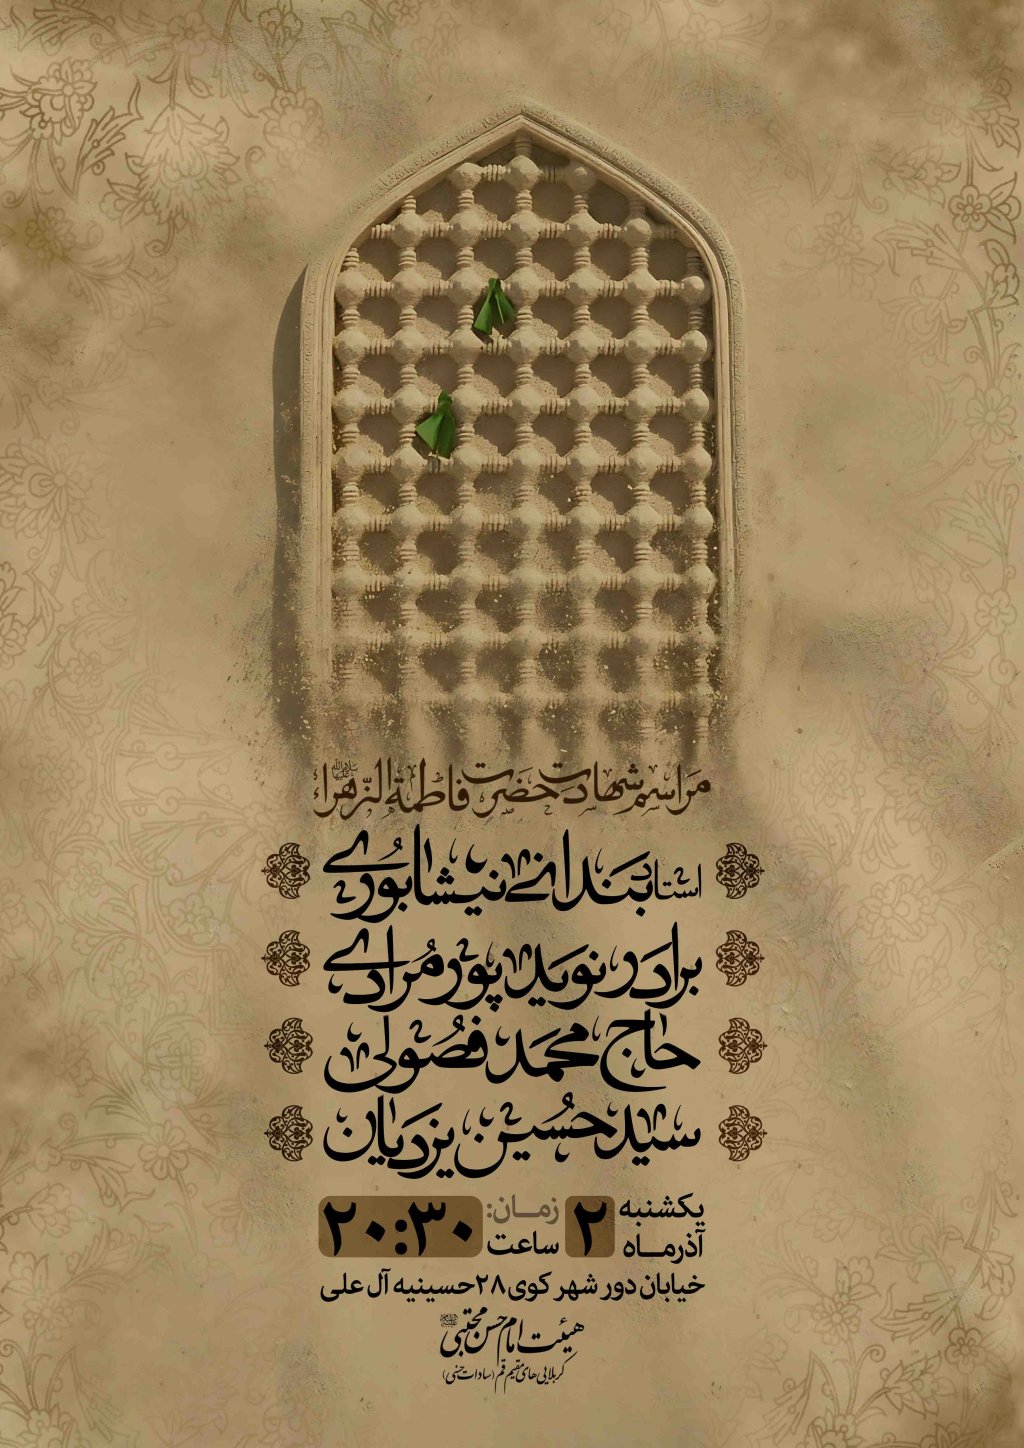 مراسم شهادت حضرت فاطمة الزهراء سلام الله علیها
استاد بندانی نیشابوری
برادر نوید پور مرادی
حاج محمد فصولی
سید حسین یزدیان
یکشنبه ۲ آذرماه زمان: ساعت ۲۰:۳۰
خیابان دور شهر کوی ۲۸ حسینیه آل علی
هیئت امام حسن مجتبی
کربلایی های مقیم قم (سادات حسنی)